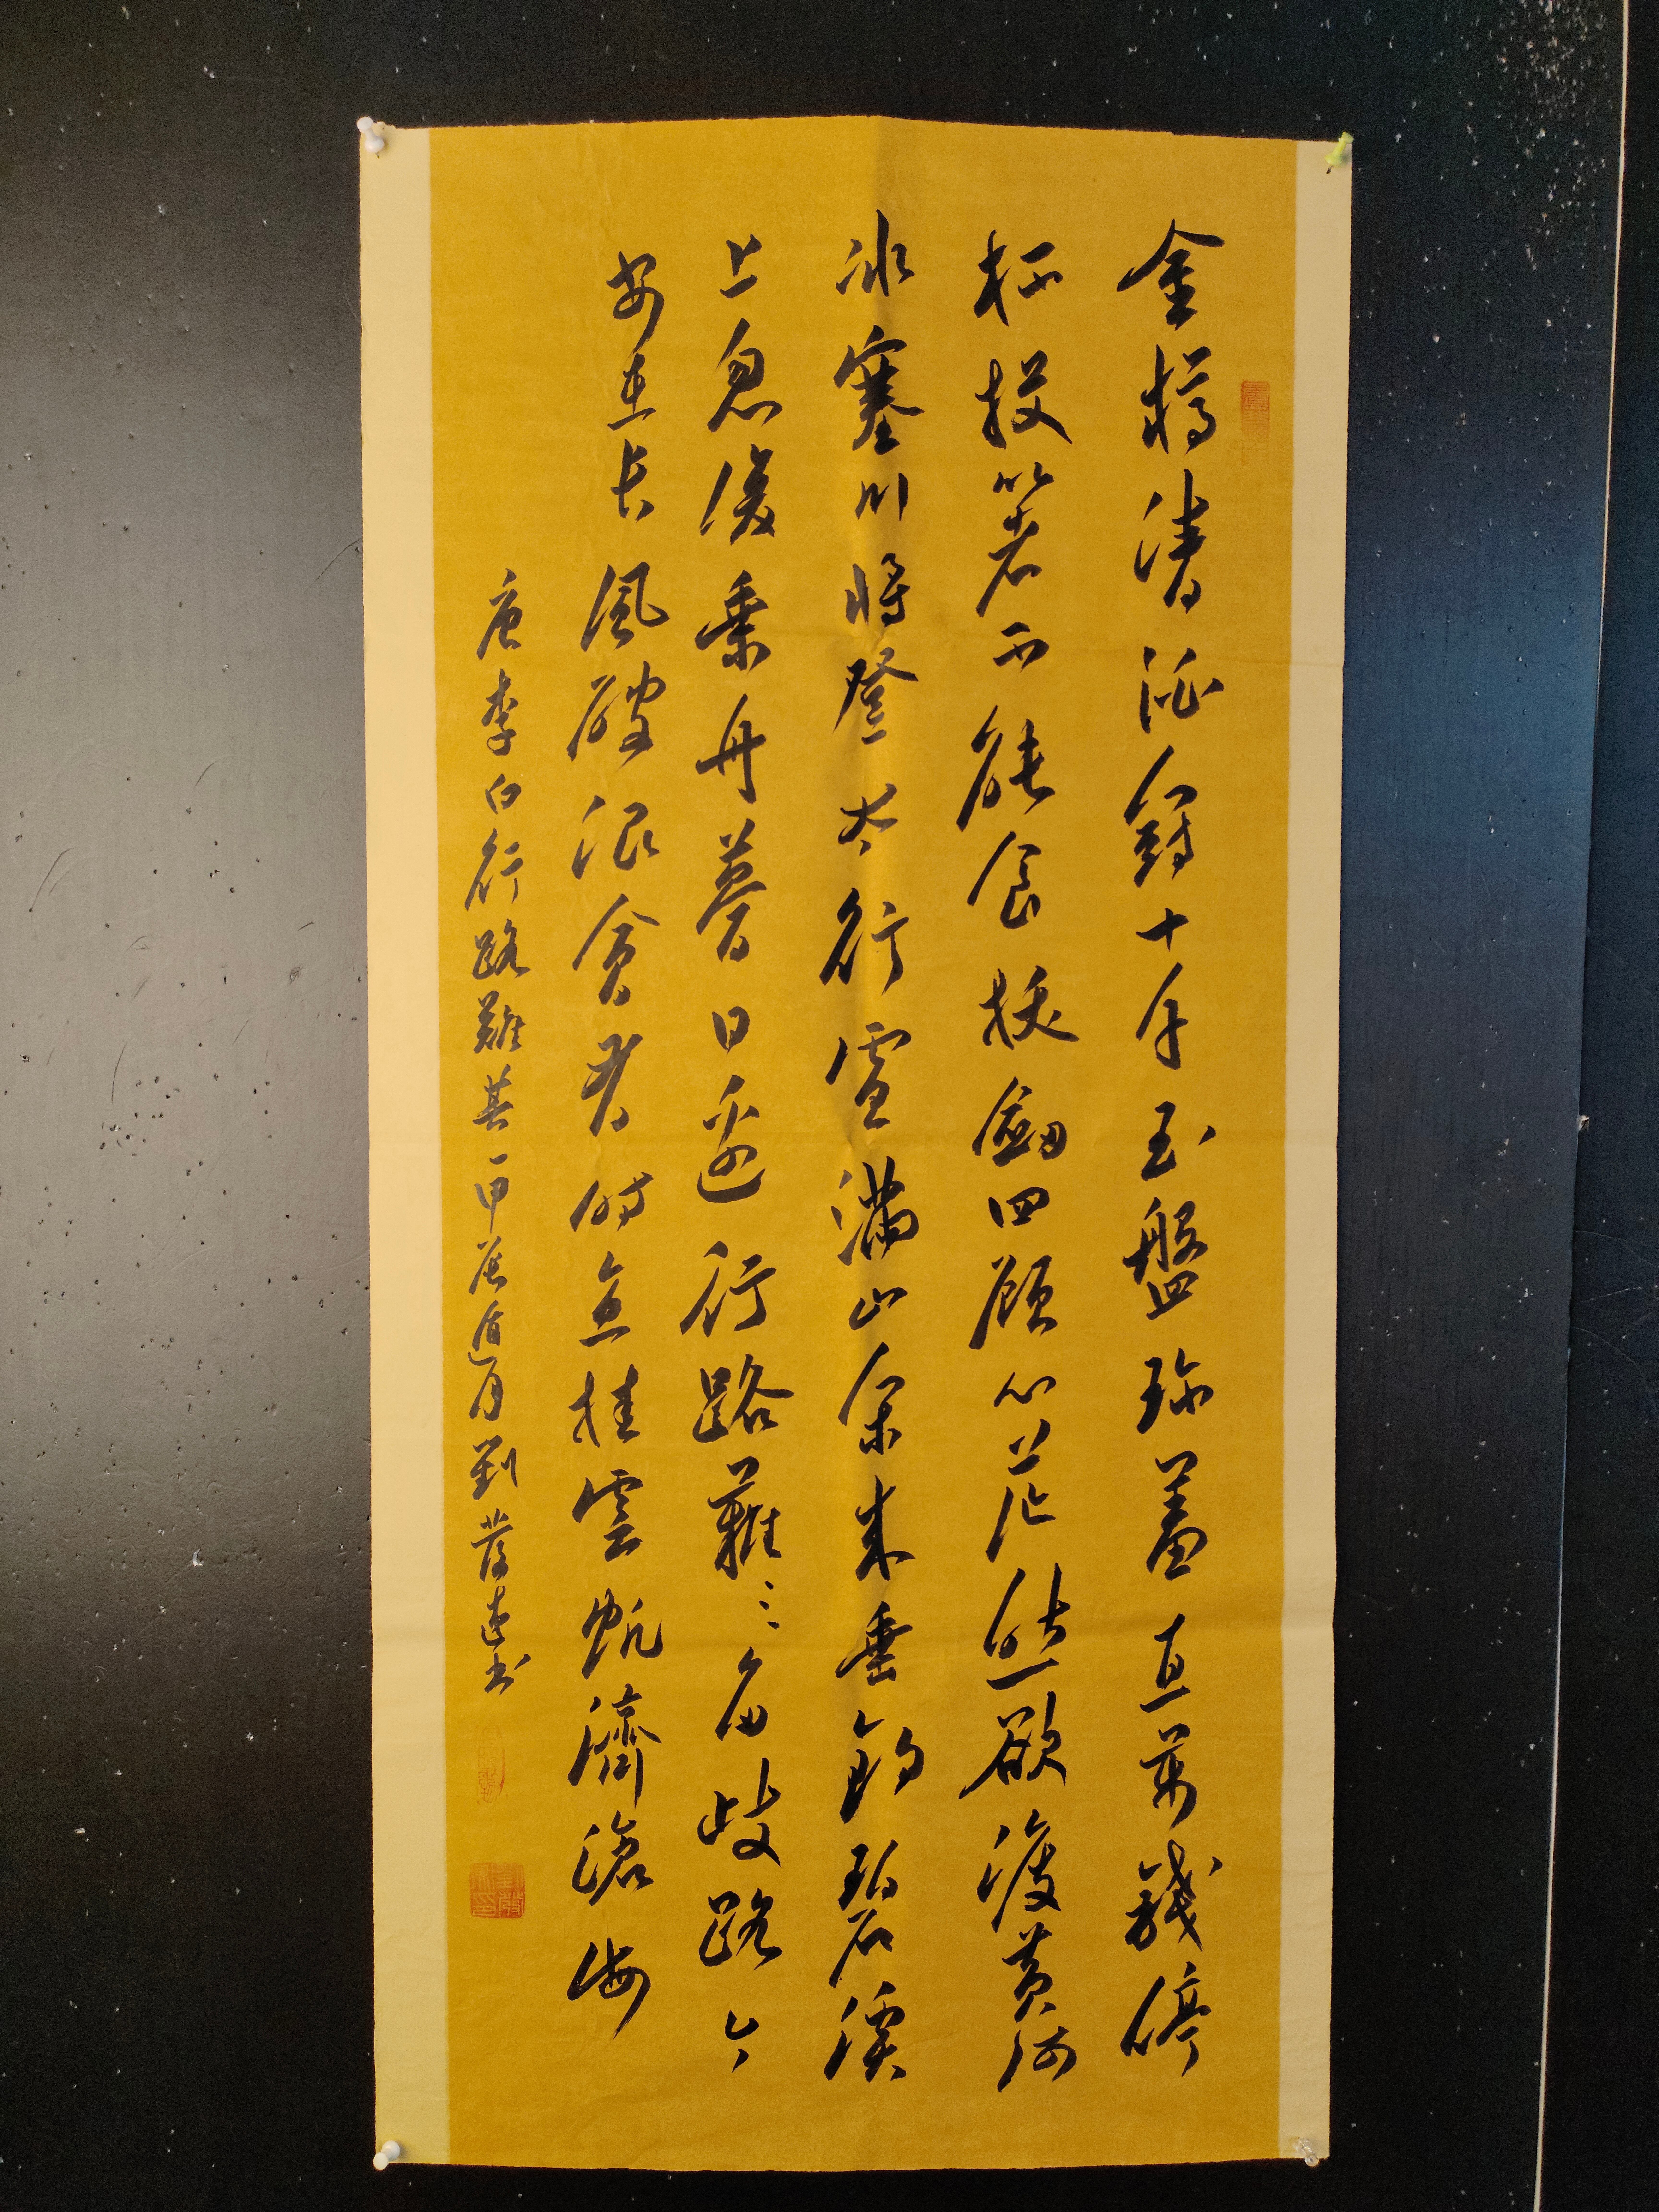 金樽清酒鬥十千玉盤珍羞直萬錢停
杯投箸不能食拔劍四顧心茫然欲渡黃河
冰塞川將登太行雪滿山余來垂釣碧溪
上忽復乘舟夢日邊行路難〻多歧路今
安在長風破浪會有時直挂雲帆濟滄海
唐李白行路難其一甲辰月劉書